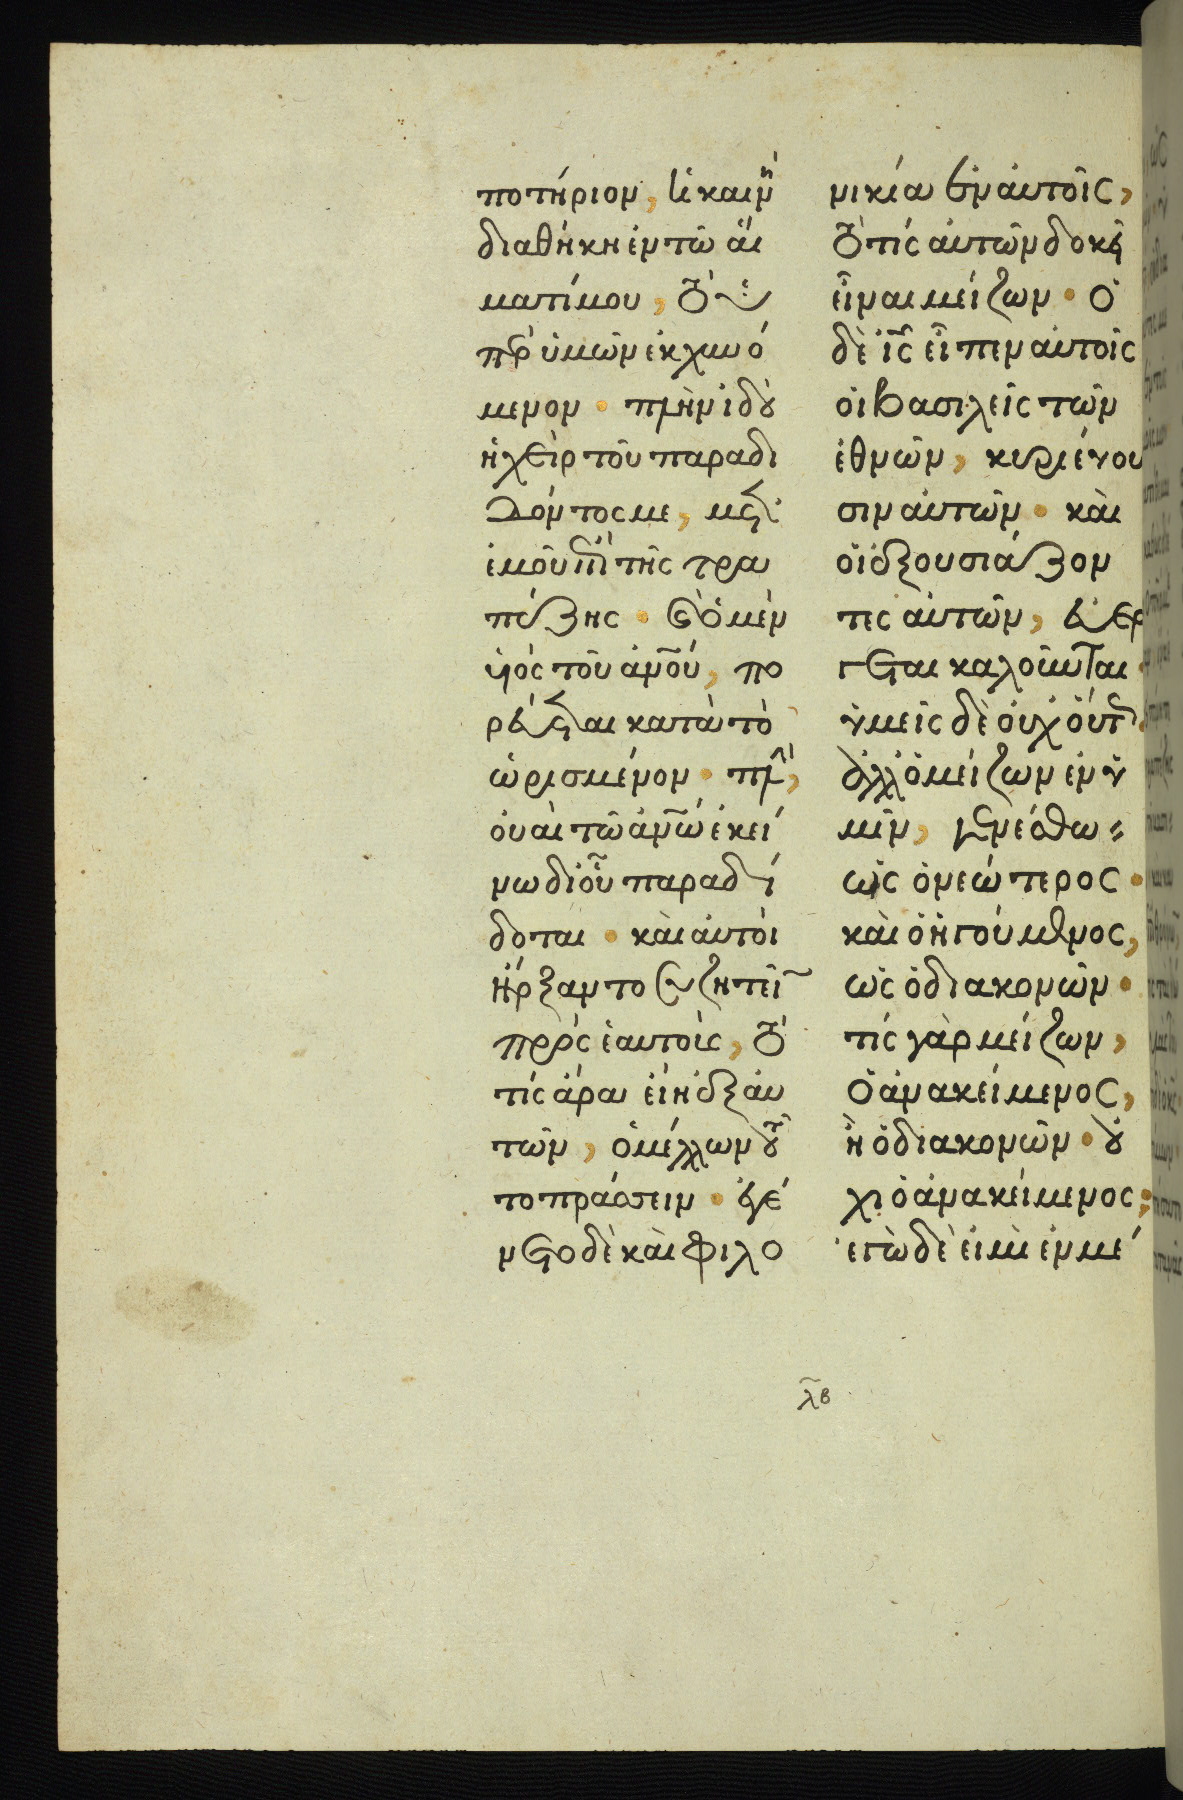 ποτήριον, ἡ καινὴ
διαθήκη ἐν τῶ αἵ
ματί μου, τὸ ὑ
πὲρ ὑμῶν ἐκχυνό
μενον · πλὴν ἰδοὺ
ἡ χεὶρ τοῦ παραδι
δόντος με, μετ'
ἐμοῦ ἐπὶ τῆς τρα
πέζης · καὶ ὁ μὲν
υἱὸς τοῦ ἀνου, πο
ρεύεται κατὰ τὸ
ὡρισμένον · πλὴν,
οὐαὶ τῶ ἀνω ἐκεί
νω δι οὗ παραδί
δοται · καὶ αὐτοὶ
ἤρξαντο συζητεῖν
πρὸς ἑαυτοὺς, τὸ
τίς ἄρα εἴη ἐξ αὐ
τῶν, ὁ μέλλων τοῦ
το πράσσειν · ἐγέ
νετο δὲ καὶ φιλο
νικία ἐν αὐτοῖς,
τὸ τίς αὐτῶν δοκεῖ
εἶναι μείζων · ὁ
δὲ ις εἶπεν αὐτοῖς
οἱ βασιλεῖς τῶν
ἐθνῶν, κυριεύου
σιν αὐτῶν · καὶ
οἱ ἐξουσιάζον
τες αὐτῶν, εὐερ
γέται καλοῦνται ·
ὑμεῖς δὲ οὐχ οὕτως.
ἀλλ ὁ μείζων ἐν ὑ
μῖν, γενέσθω
ὡς ὁ νεώτερος ·
καὶ ὁ ἡγούμενος,
ὡς ὁ διακονῶν ·
τίς γὰρ μείζων,
ὁ ἀνακείμενος,
ἢ ὁ διακονῶν · οὐ
χὶ ὁ ἀνακείμενος;
ἐγὼ δὲ εἰμὶ ἐν μέ
λβ